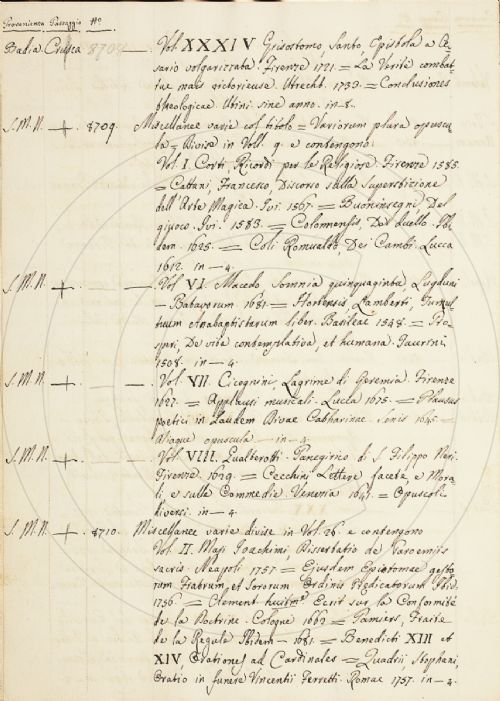 Provenienza Passaggio Nº
Badia Crusca 8708 — Vol. XXXIV Grisostomo, Santo, Epistola a Ce-
sario volgarizzata. Firenze 1721. = La Verité combat-
tue mais victorieuse. Utrecht. 1733. = Conclusiones
theologicae. Urini sine anno. in-8.
S. M. N. + 8709. Miscellanee varie col titolo = Variorum plura opuscu-
la = Divise in Voll. 9. e contengono.
Vol. I. Corti Ricordi per le Religiose. Firenze 1585.
= Cattani, Francesco, Discorso sulla Superstizione
dell'Arte Magica. Ivi 1567. = Buoninsegni, Del
giuoco. Ivi. 1583. = Colonnensis, Del duello. Ibi
sern. 1625. = Coli Romualdo, Dei Cambi. Lucca
1612. in-4.
S. M. N. + — Vol. VI. Macedo Somnia quinquaginta Lugduni
— Batavorum 1681. = Hortensis, Lamberti, Tumul-
tuum Anabaptistarum liber. Basileae 1548. = Pro-
speri, De vita contemplativa, et humana. Taurini
1508. in-4.
S. M. N. + — Vol. VII. Cicognini, Lagrime di Geremia. Firenze
1627. = Applausi musicali. Lucca 1675. = Plausus
poetici in Laudem Divae Catharinae. Senis 1645. =
Aliaque opuscula — in-4.
S. M. N. + — Vol. VIII. Gualterotti. Panegirico di S. Filippo Neri.
Firenze. 1629. = Cecchini Lettere facete, e Mora-
li, e sulle Commedie. Venezia 1647. = Opuscoli
diversi. in-4.
S. M. N. + 8710. Miscellanee varie divise in Vol. 26. e contengono
Vol. II. Maji Joachini, Dissertatio de
sacris. Neapoli 1757 = Ejusdem Epistomae gesto
rum Fratrum, et Sororum Ordinis Predicatorum Ibid.
1756. = Clement huitme Ecrit sur la Conformité
de la Doctrine. Cologne 1662 = Traite
de la Regule Ibidem — 1681. = Benedicti XIII et
XIV Orationes ad Cardinales = Quadrii, Stephani,
Oratio in funere Vincentii Ferretti. Romae 1757. in-4.